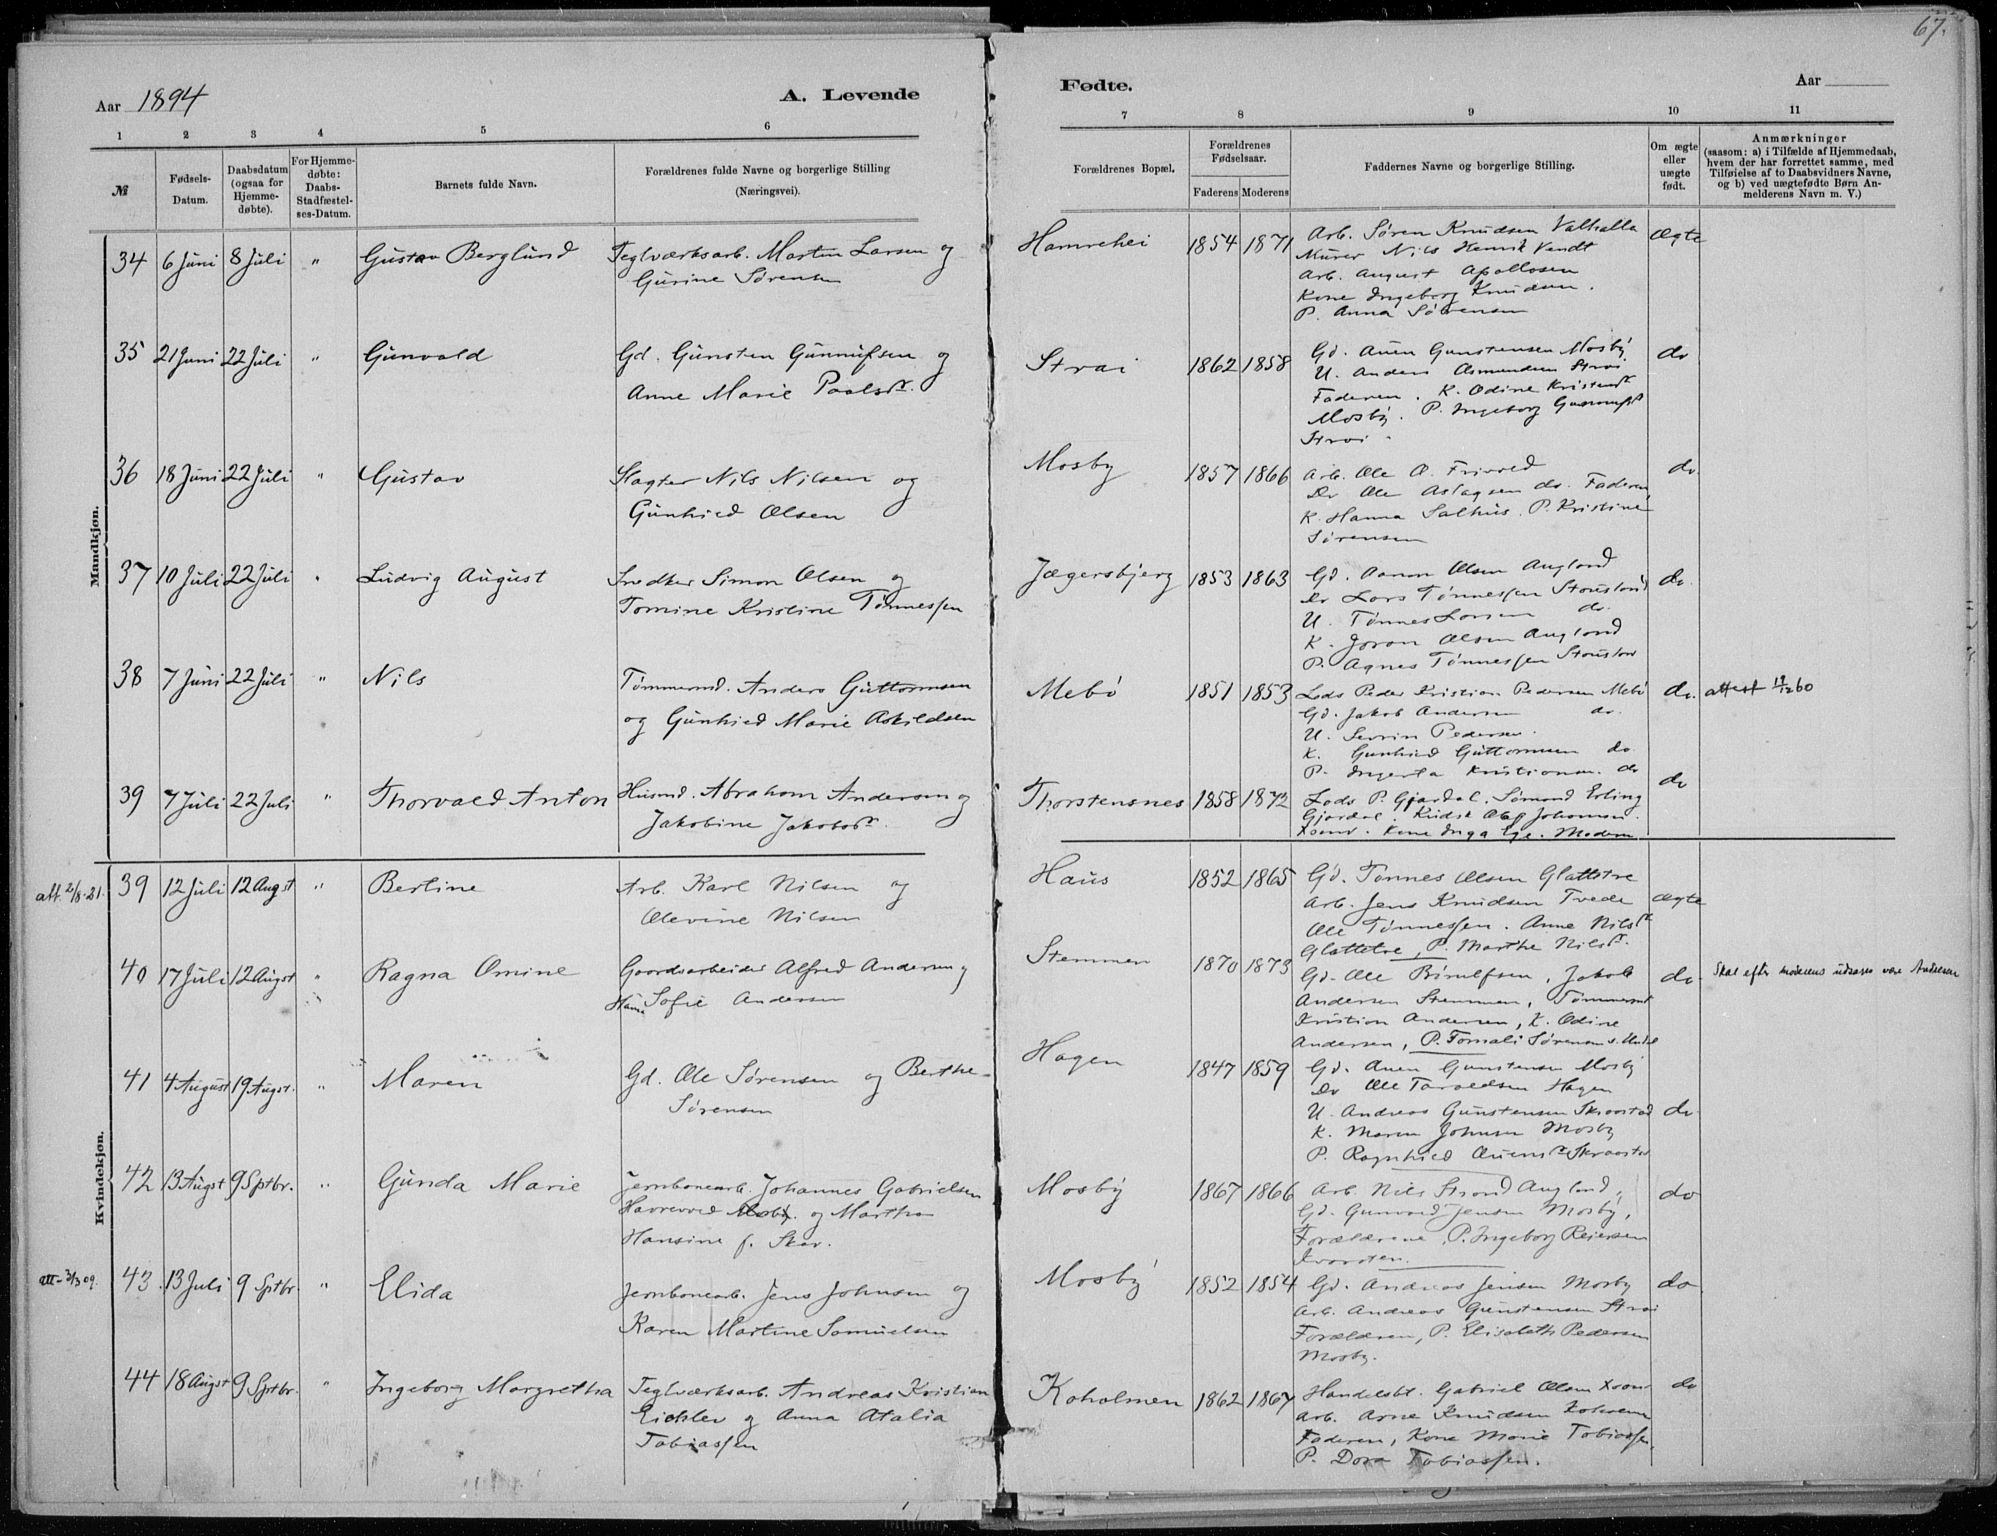 67.
Aar 1894
A. Levende
Fødte.
Aar
1 2 3 4 5 6
7 8 9 10 11
№
Fødsels-
Datum.
Daabsdatum
(ogsaa for
Hjemme-
døbte).
For Hjemme-
døbte:
Daabs-
Stadfæstel-
ses-Datum.
Barnets fulde Navn.
Forældrenes fulde Navne og borgerlige Stilling
(Næringsvei).
Forældrenes Bopæl.
Forældrenes
Fødselsaar.
Faderens Moderens
Faddernes Navne og borgerlige Stilling.
Om ægte
eller
uægte
født.
Anmærkninger
(saasom: a) i Tilfælde af Hjemmedaab,
hvem der har forrettet samme, med
Tilføielse af to Daabsvidners Navne,
og b) ved uægtefødte Børn An-
melderens Navn m. V.)
Mandkjøn.
34 6 Juni 8 Juli " Gustav Berglund Teglværksarb. Martin Larsen og
Gurine Sørensen
Hamrehei 1854 1871 Arb. Søren Knudsen Valhalla ægte
Murer Nils Henrik Vendt
Arb. August Apollosen
Kone Ingeborg Knudsen.
P. Anna Sørensen
35 21 Juni 22 Juli " Gunvald Gd. Gunsten Gunnufsen og
Anne Marie Paalsd.
Strai 1862 1858 Gd. Auen Gunstensen Mosby do
U. Anders Asmundsen Strai
Faderen. K. Odine Kristensd.
Mosby. P. Ingeborg Gunnufsd.
Strai.
36 18 Juni 22 Juli " Gustav Slagter Nils Nilsen og
Gunhild Olsen
Mosby 1857 1866 Arb. Ole O. Frivold do.
Do Ole Aslagsen do. Faderen
K. Hanna Salhus. P. Kristine
Sørensen
37 10 Juli 22 Juli " Ludvig August Snedker Simon Olsen og
Tomine Kristine Tønnessen
Jægersbjerg 1853 1863 Gd. Aanon Olsen Augland do.
Do Lars Tønnessen Stousland
U. Tønnes Larsen do.
K. Joran Olsen Augland
P. Agnes Tønnessen Stousland
38 7 Juni 22 Juli " Nils Tømmermd. Anders Guttormsen
og Gunhild Marie Askildsen
Mebø 1851 1853 Lods Peder Kristian Pedersen Mebø do. attest 19/12 60
Gd. Jakob Andersen do.
U. Severin Pedersen.
K. Gunhild Guttormsen do
P. Ingerta Kristiansen. do
39 7 Juli 22 Juli " Thorvald Anton Husmd. Abraham Andersen og
Jakobine Jakobsd.
Thorstensnes 1858 1872 Lods P. Gjardal. Sømand Erling do
Gjardal. Kudsk Olaf Johansen.
Xsand. Kone Inga Ege. Moderen
Kvindekjøn.
att. 2/8-21. 39 12 Juli 12 Augst " Berline Arb. Karl Nilsen og
Olevine Nilsen
Haus 1852 1865 Gd. Tønnes Olsen Glattetre
Arb. Jens Knudsen Tvede ægte
Ole Tønnessen. Anne Nilsd.
Glattetre, P. Marthe Nilsd.
40 17 Juli 12 Augst " Ragna Omine Gaardsarbeider Alfred Andersen og
Hanna Sofie Andersen
Stemmen 1870 1873 Gd. Ole Bjørulfsen, Jakob do. Skal efter moderens udsagn være Andersen
Andersen Stemmen, Tømmermd
Kristian Andersen, K. Odine
Andersen, P. Tomali Sørensen
41 4 August 19 Augst. " Maren Gd. Ole Sørensen og Berthe
Sørensen
Hagen 1847 1859 Gd. Auen Gunstensen Mosby
Do Ole Tarvaldsen Hagen
U. Andreas Gunstensen Skraastad do.
K. Maren Johnsen Mosby
P. Ragnhild Auensd. Skraastad
42 13 Augst 9 Sptbr. " Gunda Marie Jernbanearb. Johannes Gabrielsen
Haverved Mosby. og Martha
Hansine f. Skar.
Mosby 1867 1866 Arb. Nils Strand Augland, do
Gd. Gunvald Jensen Mosby,
Forældrene, P. Ingeborg Reiersen
Kvarsten.
att- 3/3 09. 43. 13 Juli 9 Sptbr. " Elida Jernbanearb. Jens Johnsen og
Karen Martine Samuelsen
Mosby 1852 1854 Gd. Andreas Jensen Mosby do
Arb. Andreas Gunstensen Strai
Forældren, P. Elisabeth Pedersen
Mosby.
44 18 Augst 9 Sptbr. " Ingeborg Margretha Teglværksarb. Andreas Kristian
Eichler og Anna Atalia
Tobiassen
Koholmen 1862 1867 Handelsbt. Gabriel Olsen Xsand do
Arb. Arne Knudsen Koholmen
Faderen, Kone Marie Tobiassen,
P. Dora Tobiassen.